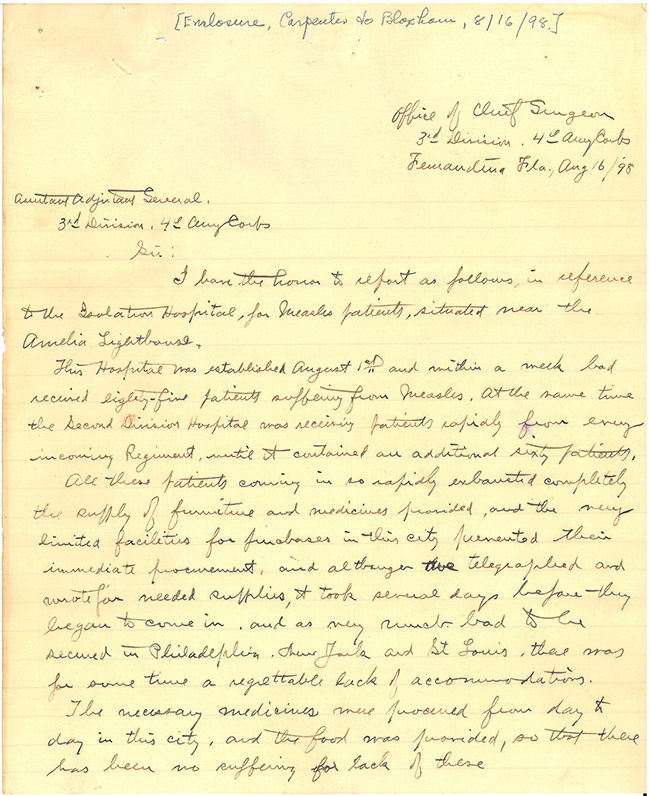 [Enclosure, Carpenter to Bloxham, 8/16/98.]
Office of Chief Surgeon
3rd Division. 4th Army Corps
Fernandina Fla., Aug 16/98
Assistant Adjutant General.
3rd Division. 4th Army Corps
Sir:
I have the honor to report as follows, in reference
to the Isolation Hospital, for Measles patients, situated near the
Amelia Lighthouse.
This Hospital was established August 1st and within a week had
received eighty-five patients suffering from Measles. At the same time
the Second Division Hospital was receiving patients rapidly from every
incoming Regiment, until it contained an additional sixty patients.
All these patients coming in so rapidly exhausted completely
the supply of furniture and medicines provided, and the very
limited facilities for purchases in this city prevented their
immediate procurement, and although we telegraphed and
wrote for needed supplies, it took several days before they
began to come in. and as very much had to be
secured in Philadelphia. New York and St Louis, there was
for some time a regrettable lack of accommodations.
The necessary medicines were procured from day to
day in this city, and the food was provided, so that there
has been no suffering for lack of these